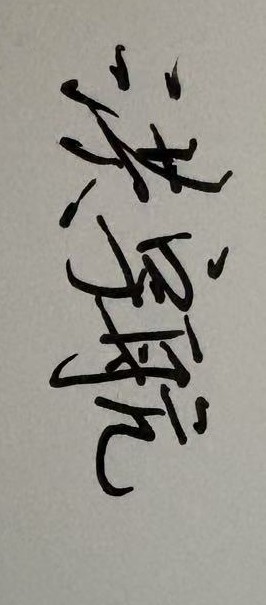 洪宇航